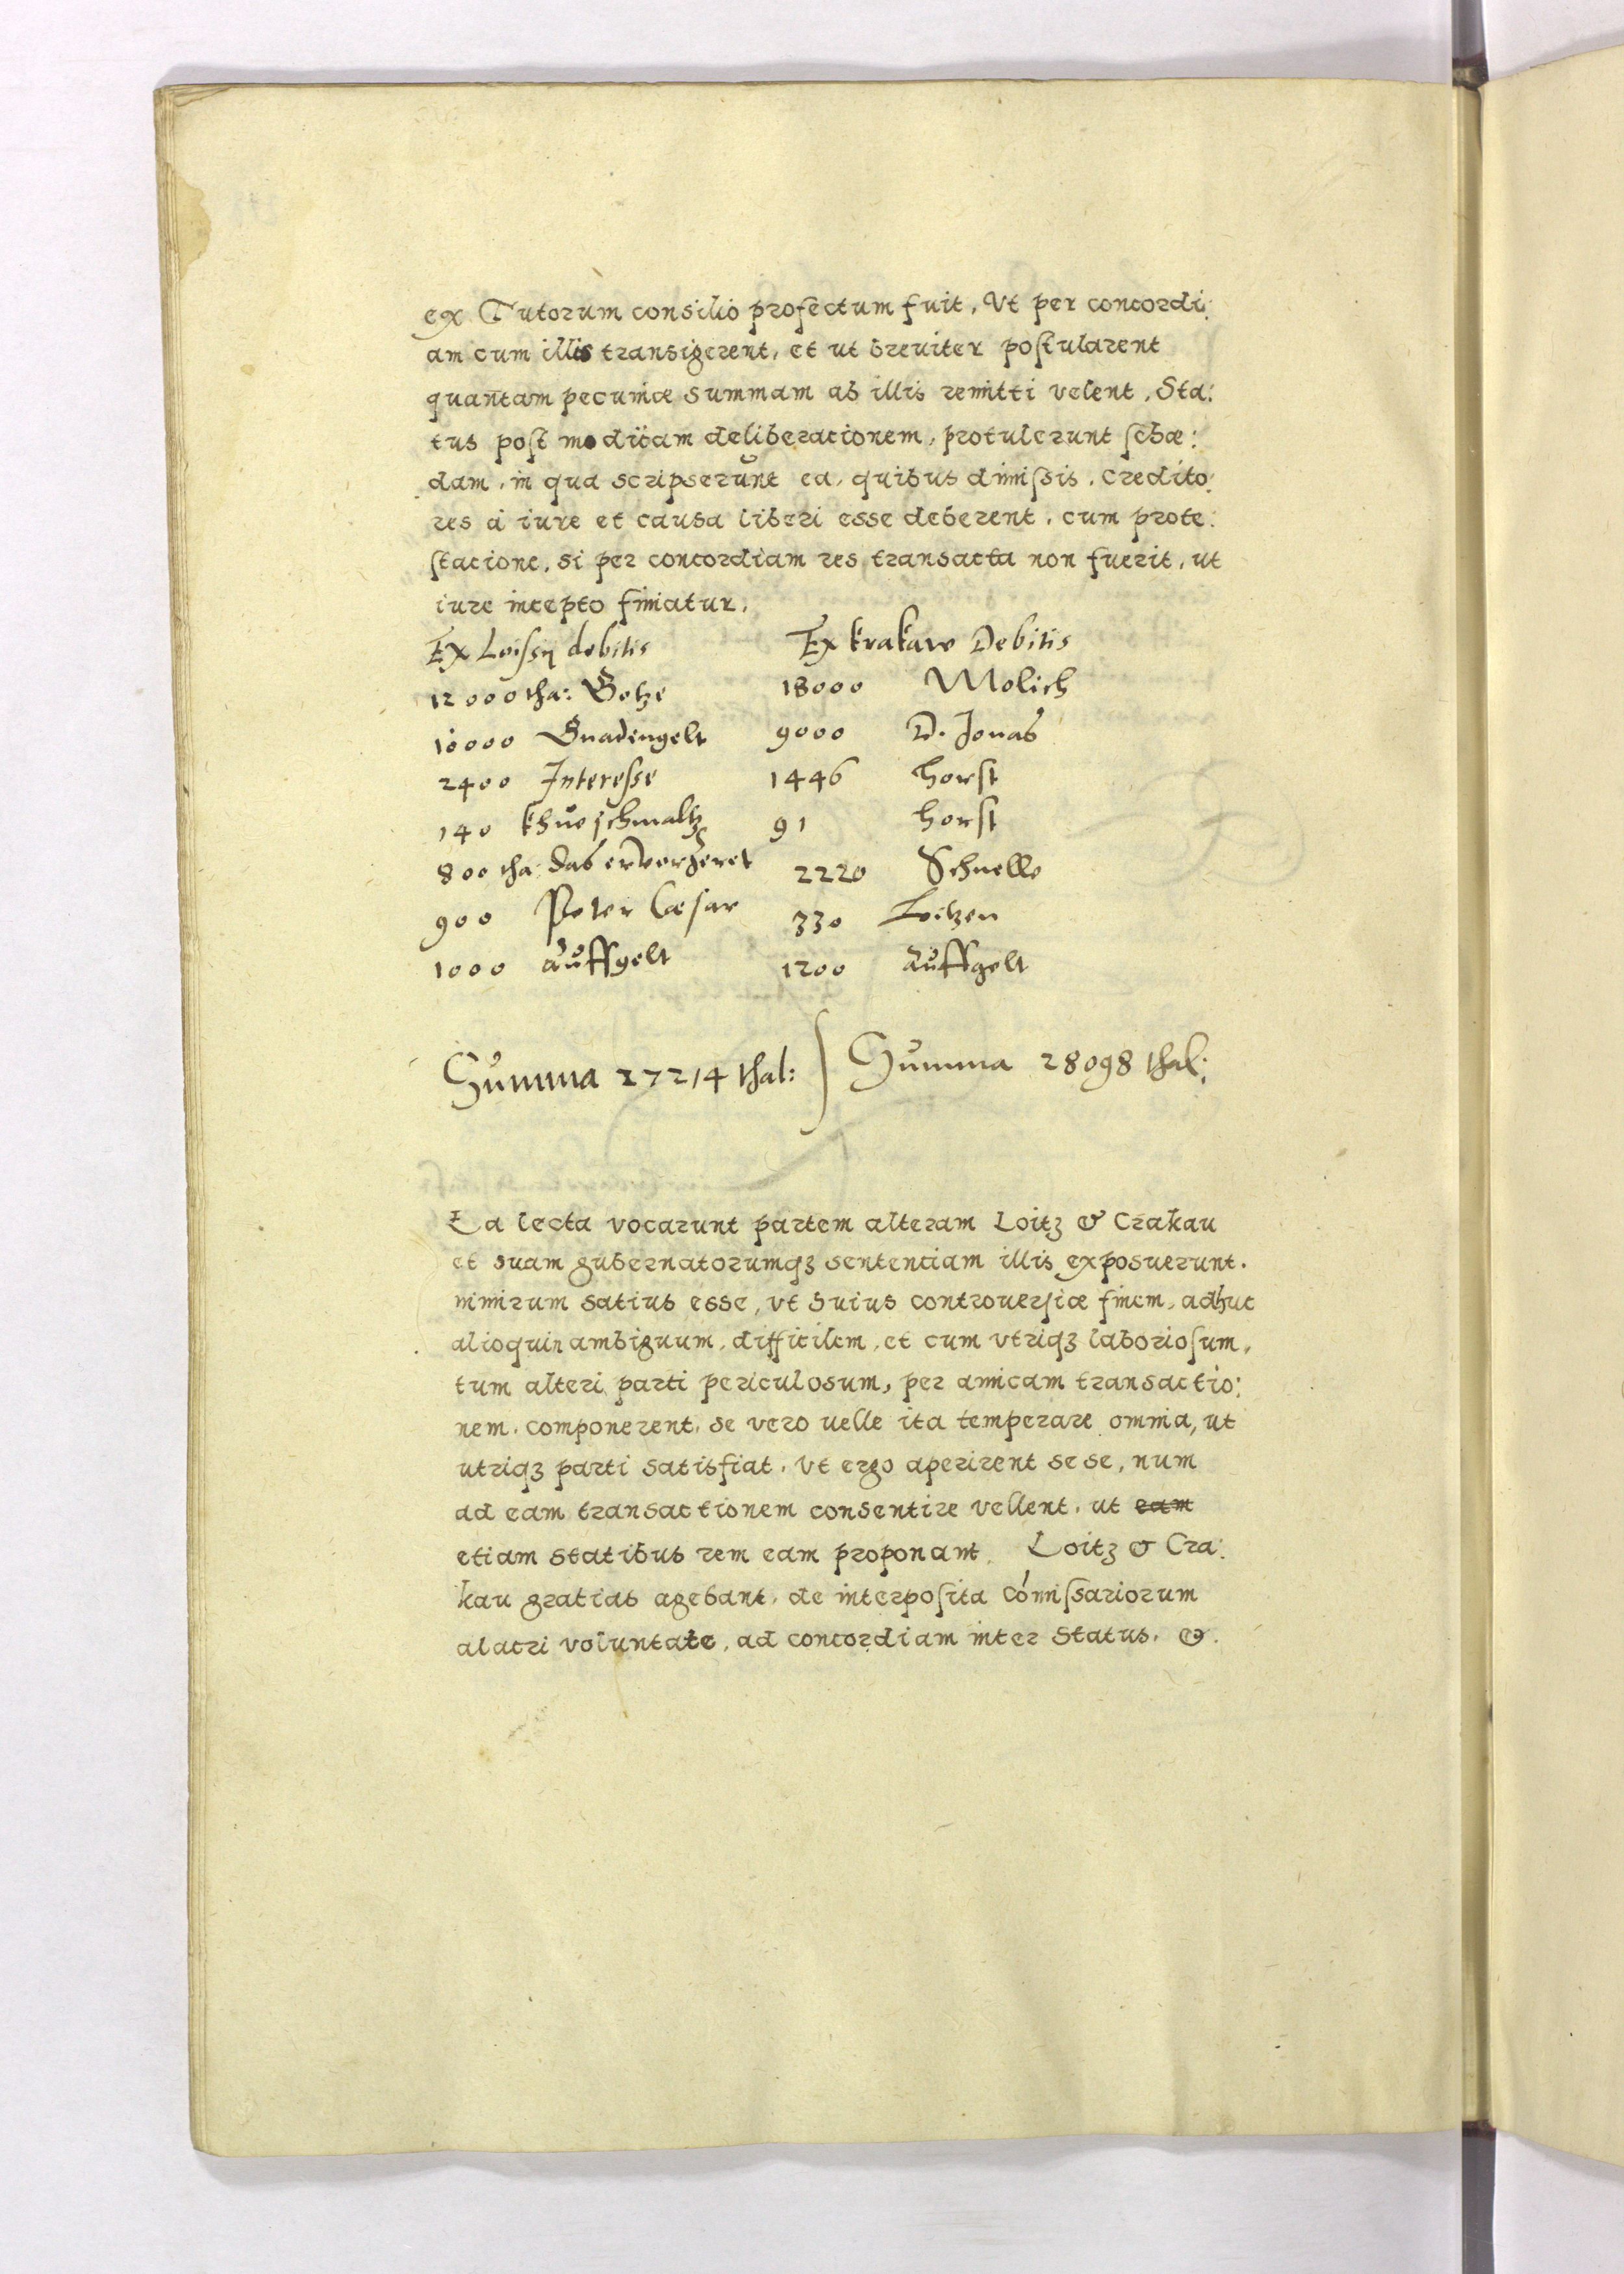 ex Tutorum consilio profectum fuit, Vt per concordi:
am cum illis transigerent, et ut breuiter postularent
quantam pecuniæ summam ab illis remitti velent, Sta:
tus post modicam deliberationem, protulerunt schæ:
dam, in qua scripserunt ea, quibus dimissis, credito:
res à iure et causa liberi esse deberent, cum prote:
statione, si per concordiam res transacta non fuerit, ut
iure incepto finiatur,
Ex Loissij debitis Ex krakaw Debitis
12000 tha: Gotze 18000 Molich
10000 Gnadengelt 9000 D. Jonas
2400 Interesse 1446 horst
140 khueschmaltz 91 horst
800 tha: das er verzeret 2220 Schnelle
900 Peter Cæsar 330 Loitzen
1000 auffgelt 1200 auffgelt
Summa 27214 thal: Summa 28098 thal:
Ea lecta vocarunt partem alteram Loitz & Crakau
et suam gubernatorumqꝫ sententiam illis exposuerunt.
nimirum satius esse, vt huius controuersiæ finem, adhuc
alioquin ambiguum, difficilem, et cum vtriqꝫ laboriosum,
tum alteri parti periculosum, per amicam transactio:
nem, componerent, se vero uelle ita temperare omnia, ut
utriqꝫ parti satisfiat. Vt ergo aperirent sese, num
ad eam transactionem consentire vellent, ut eam
etiam statibus rem eam proponant. Loitz & Cra:
kau gratias agebant, de interposita Comissariorum
alacri voluntate, ad concordiam inter Status. &.